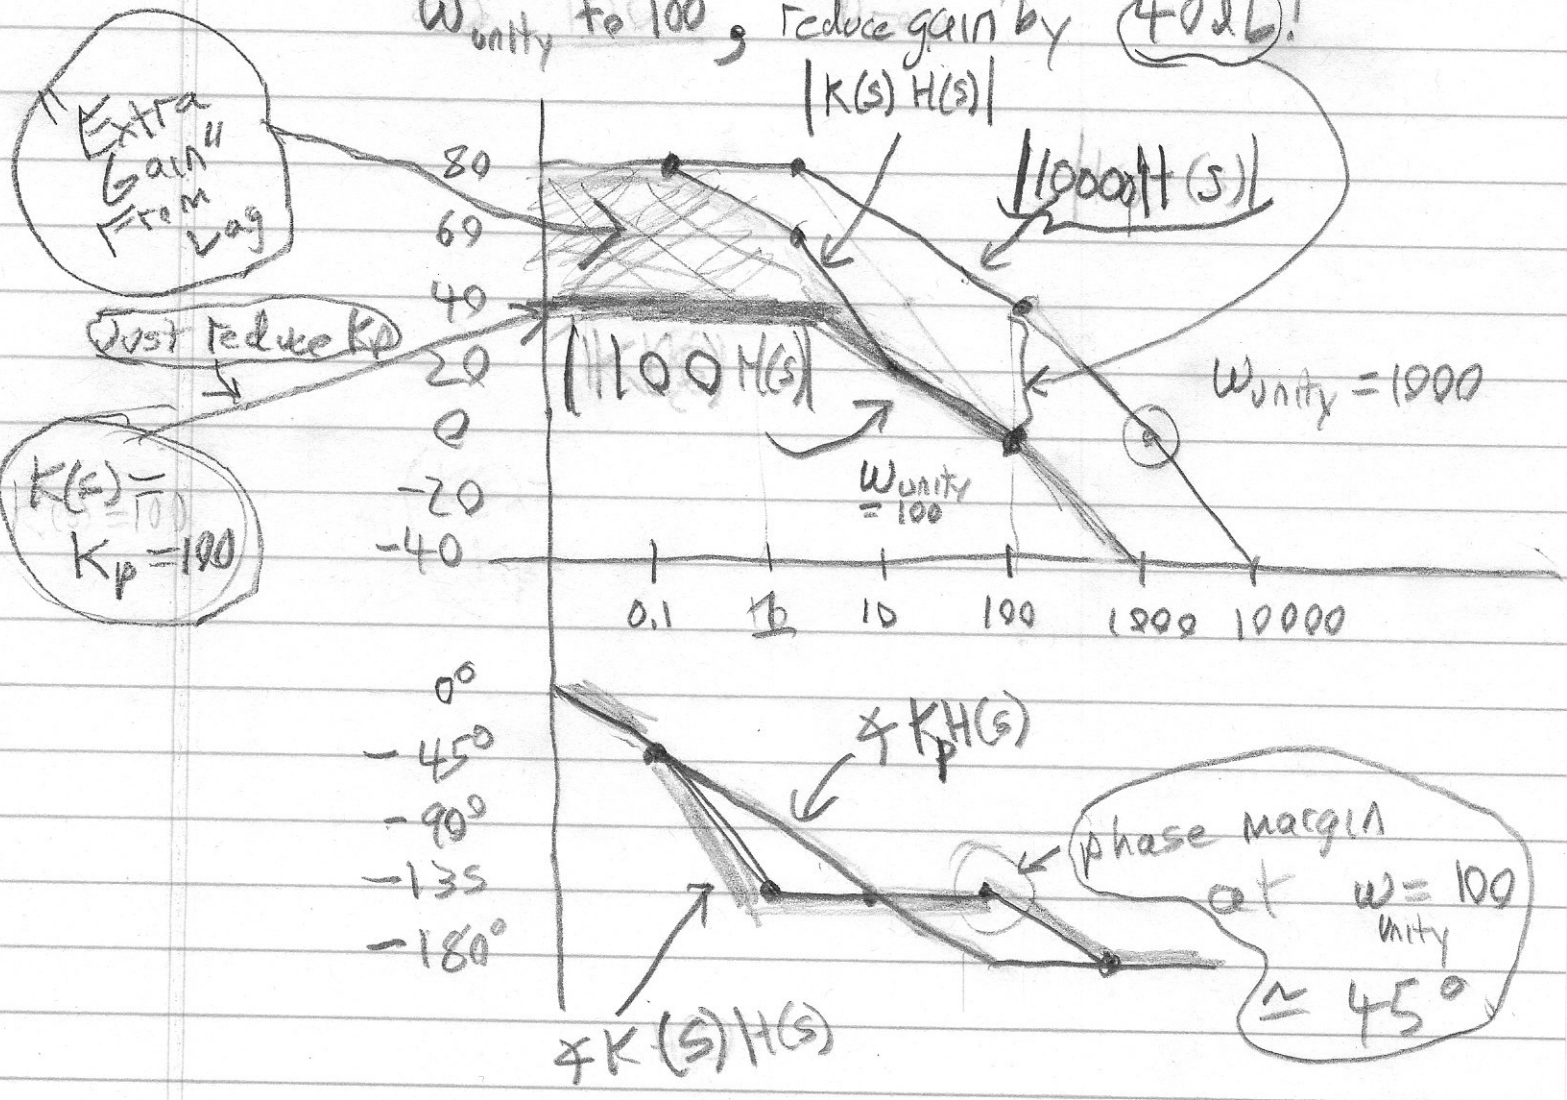 ω unity to 100, reduce gain by 40db!
|K(s) H(s)|
"Extra
Gain"
From
Lag
|10000H(s)|
80
60
40
20
0
-20
-40
Just reduce Kp
|100 H(s)|
ω unity = 1000
ω unity
= 100
K(s) =
Kp = 100
0.1 1 10 100 1000 10000
0°
-45°
-90°
-135
-180°
∡ KpH(s)
phase margin
at ω = 100
unity
≃ 45°
∡K(s)H(s)